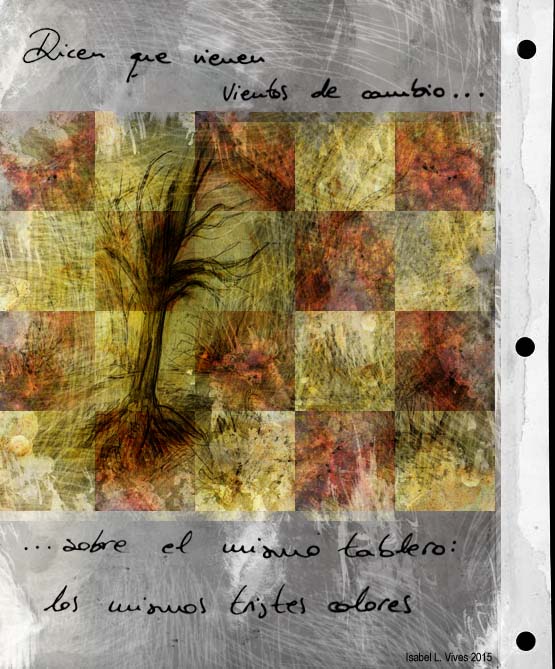 Dicen que vienen
vientos de cambio...
...sobre el mismo tablero:
los mismos tristes colores
Isabel L. Vives 2015